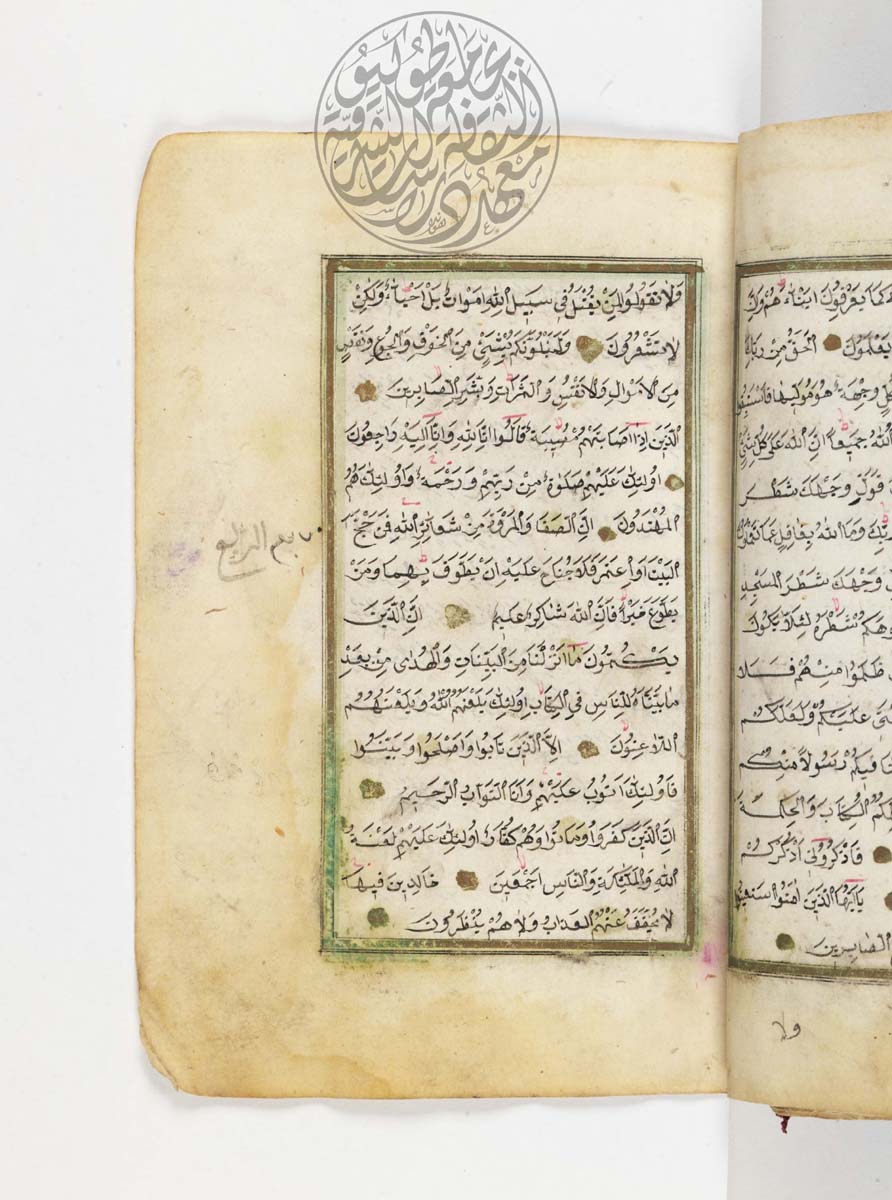 معهد دراسات الثقافة الشرقية بجامعة طوكيو
كما يعرفون ابناءهم وان
يعلمون الحق من ربك
وجهة هو موليها فاستبقوا
الله جميعا ان الله على كل شئ
فول وجهك شطر
ربك وما الله بغافل عما تعملون
وجهك شطر المسجد
شطره لئلا يكون
ظلموا منهم فلا
عليكم ولعلكم
فيكم رسولا منكم
الكتاب والحكمة
فاذكروني اذكركم
يا ايها الذين امنوا استعينوا
الصابرين
ولا
ولا تقولوا لمن يقتل في سبيل الله اموات بل احياء ولكن
لا تشعرون ولنبلونكم بشئ من الخوف والجوع ونقص
من الاموال والانفس والثمرات وبشر الصابرين
الذين اذا اصابتهم مصيبة قالوا انا لله وانا اليه راجعون
اولئك عليهم صلوات من ربهم ورحمة واولئك هم
المهتدون ان الصفا والمروة من شعائر الله فمن حج
البيت او اعتمر فلا جناح عليه ان يطوف بهما ومن
تطوع خيرا فان الله شاكر عليم ان الذين
يكتمون ما انزلنا من البينات والهدى من بعد
ما بيناه للناس في الكتاب اولئك يلعنهم الله ويلعنهم
اللاعنون الا الذين تابوا واصلحوا وبينوا
فاولئك اتوب عليهم وانا التواب الرحيم
ان الذين كفروا وماتوا وهم كفار اولئك عليهم لعنة
الله والملئكة والناس اجمعين خالدين فيها
لا يخفف عنهم العذاب ولا هم ينظرون